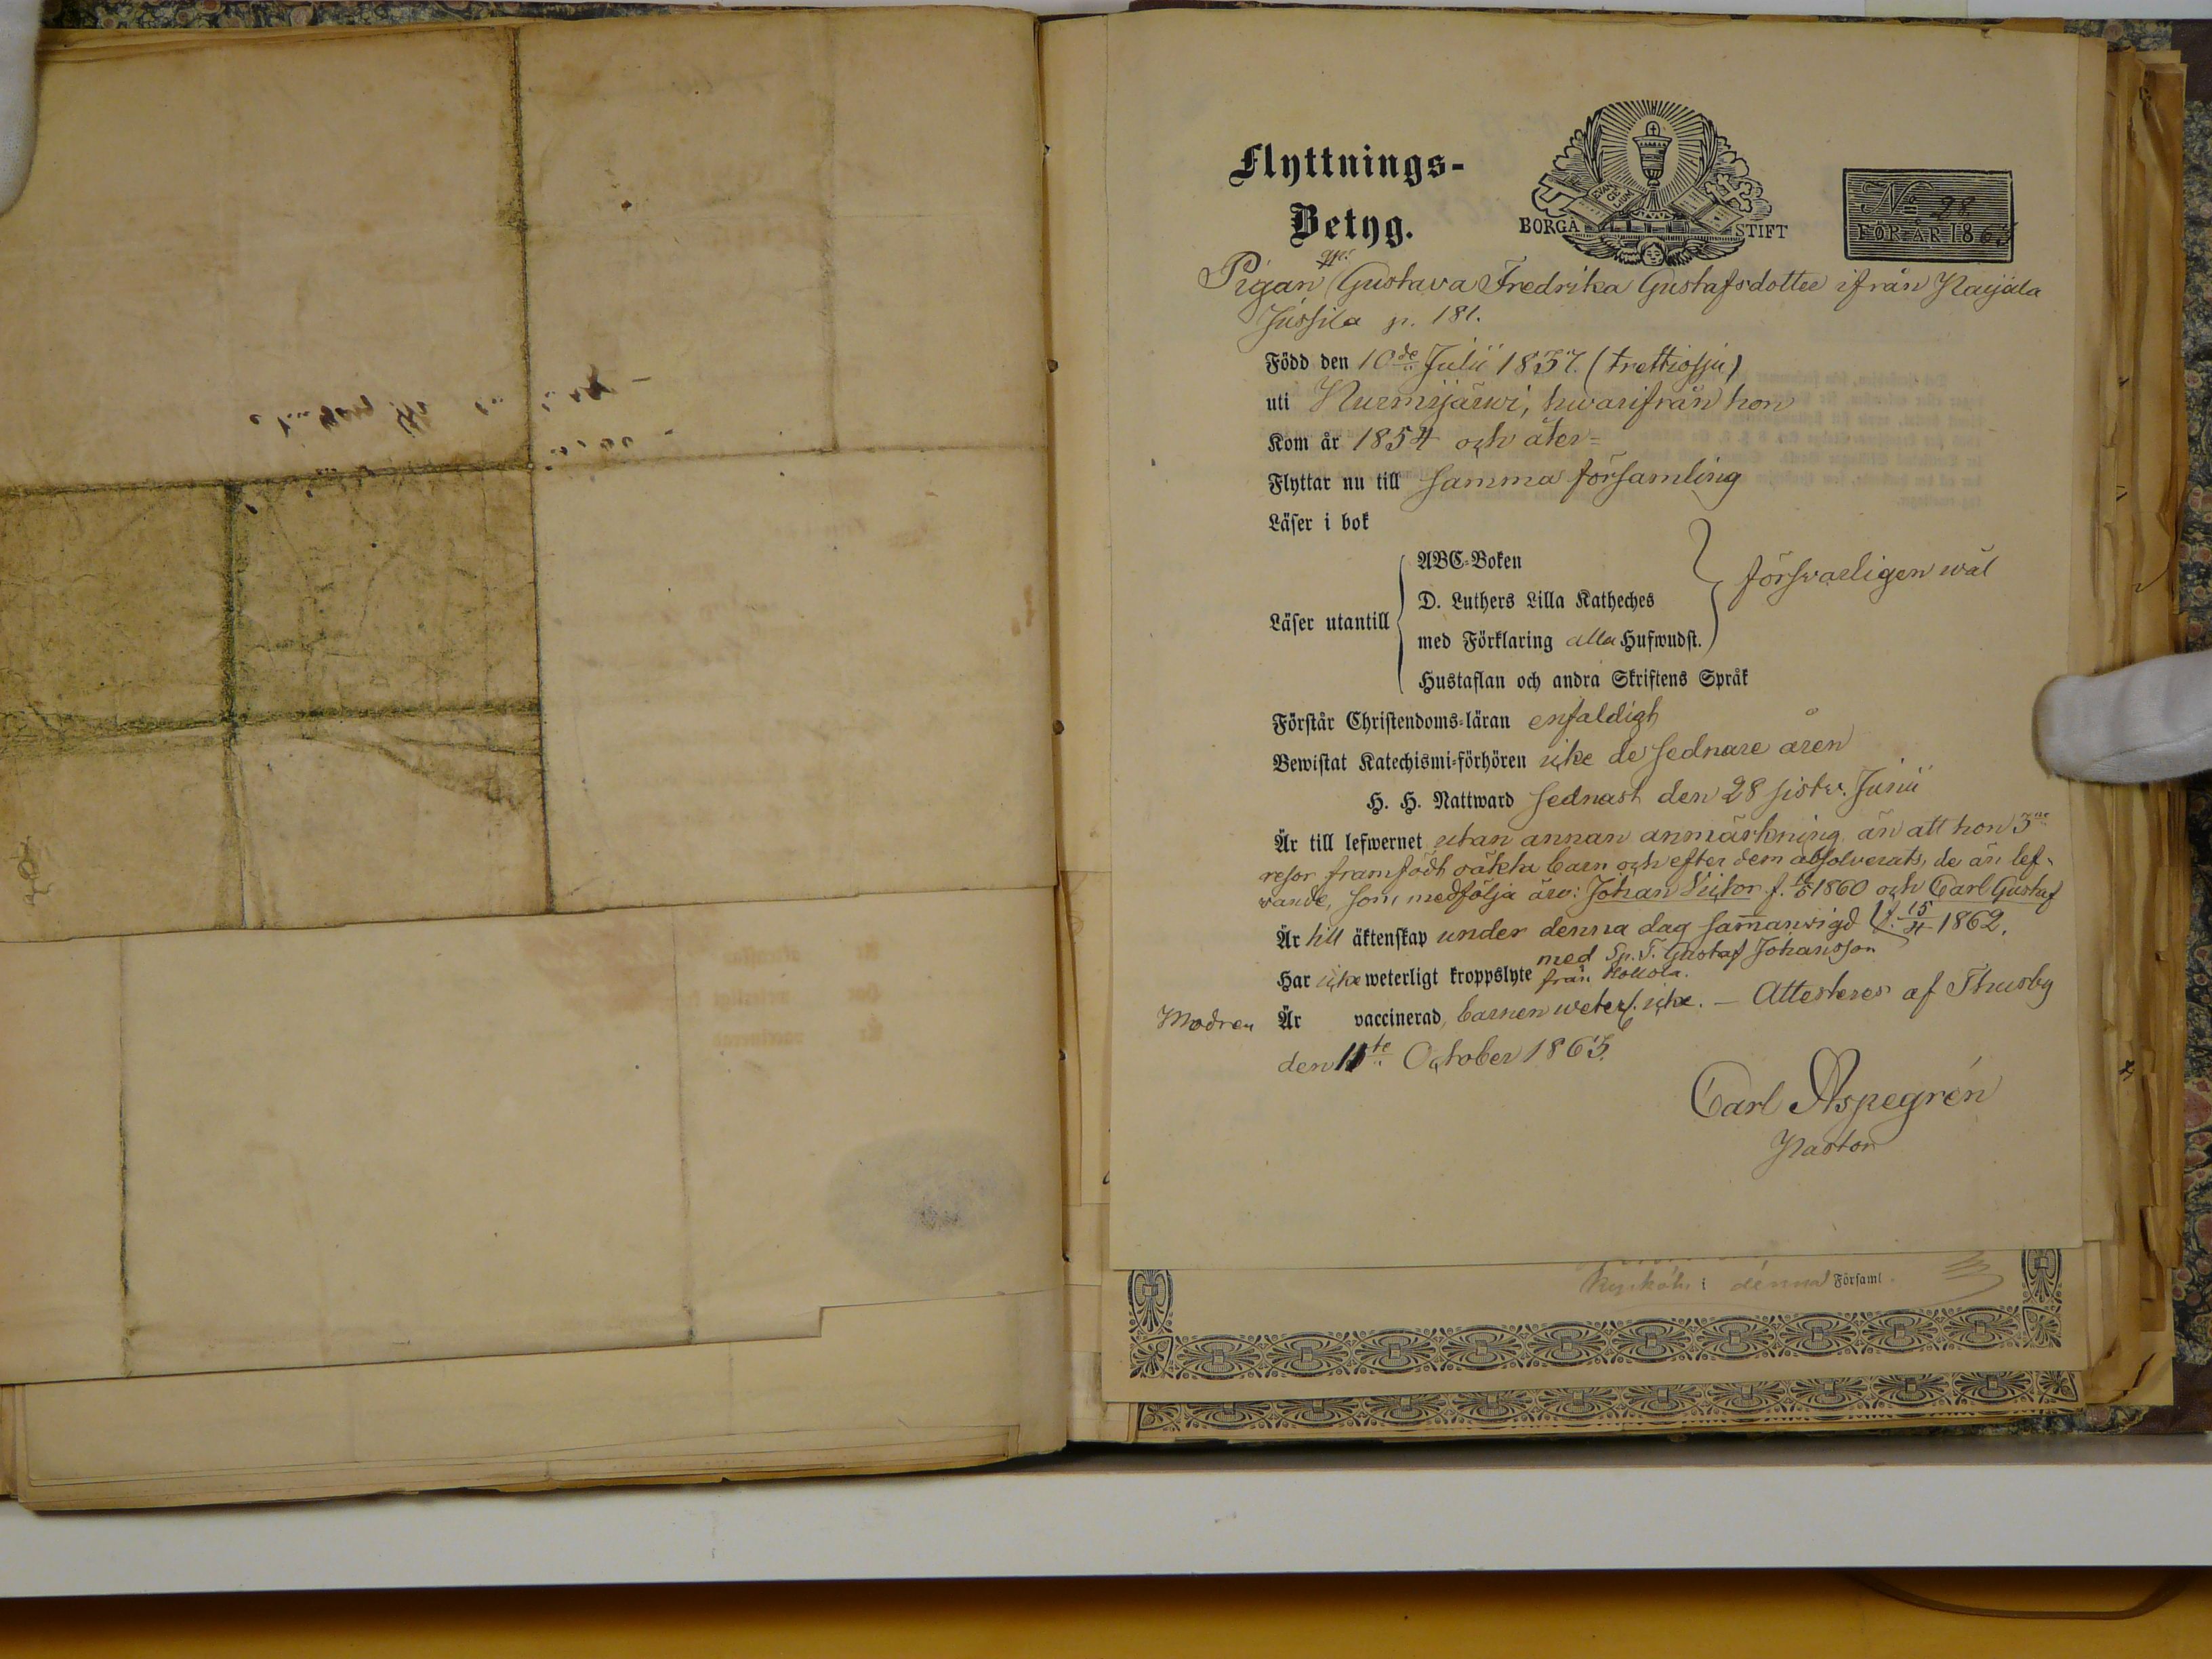 Flyttnings-
Betyg.
EVAN
GE
LIUM
BORGÅ STIFT
No 28
FÖR ÅR 1863
Pigan Gustava Fredrika Gustafsdotter ifrån Paijala
Jussila p. 181.
Född den 10de Julii 1837. (trettiosju)
uti Nurmijärwi, hwarifrån hon
Kom år 1854 och åter-
Flyttar nu till samma församling
Läser i bok
ABC-Boken
D. Luthers Lilla Katheches
Läser utantill
med Förklaring alla Hufwudst.
försvarligen wäl
Hustaflan och andra Skriftens Språk
Förstår Christendoms-läran enfaldigt
Bewistat Katechismi-förhören icke de sednare åren
H. H. Nattward sednast den 28 sistv. Junii
Är till lefwernet utan annan anmärkning än att hon 3ne
resor framfödt oäkta barn och efter dem absolverats, de än lef-
vande, som medfölja äro: Johan Victor f. 1860 och Carl Gustaf
f. 15/4 1862.
Är till äktenskap under denna dag samanvigd
med Sp. T. Gustaf Johansson
från Hollola.
Har icke weterligt kroppslyte
Modren Är vaccinerad, barnen weterl. icke. — Attesteres af Thusby
den 11te October 1863.
Carl Aspegrén
Pastor
i denna Församl.